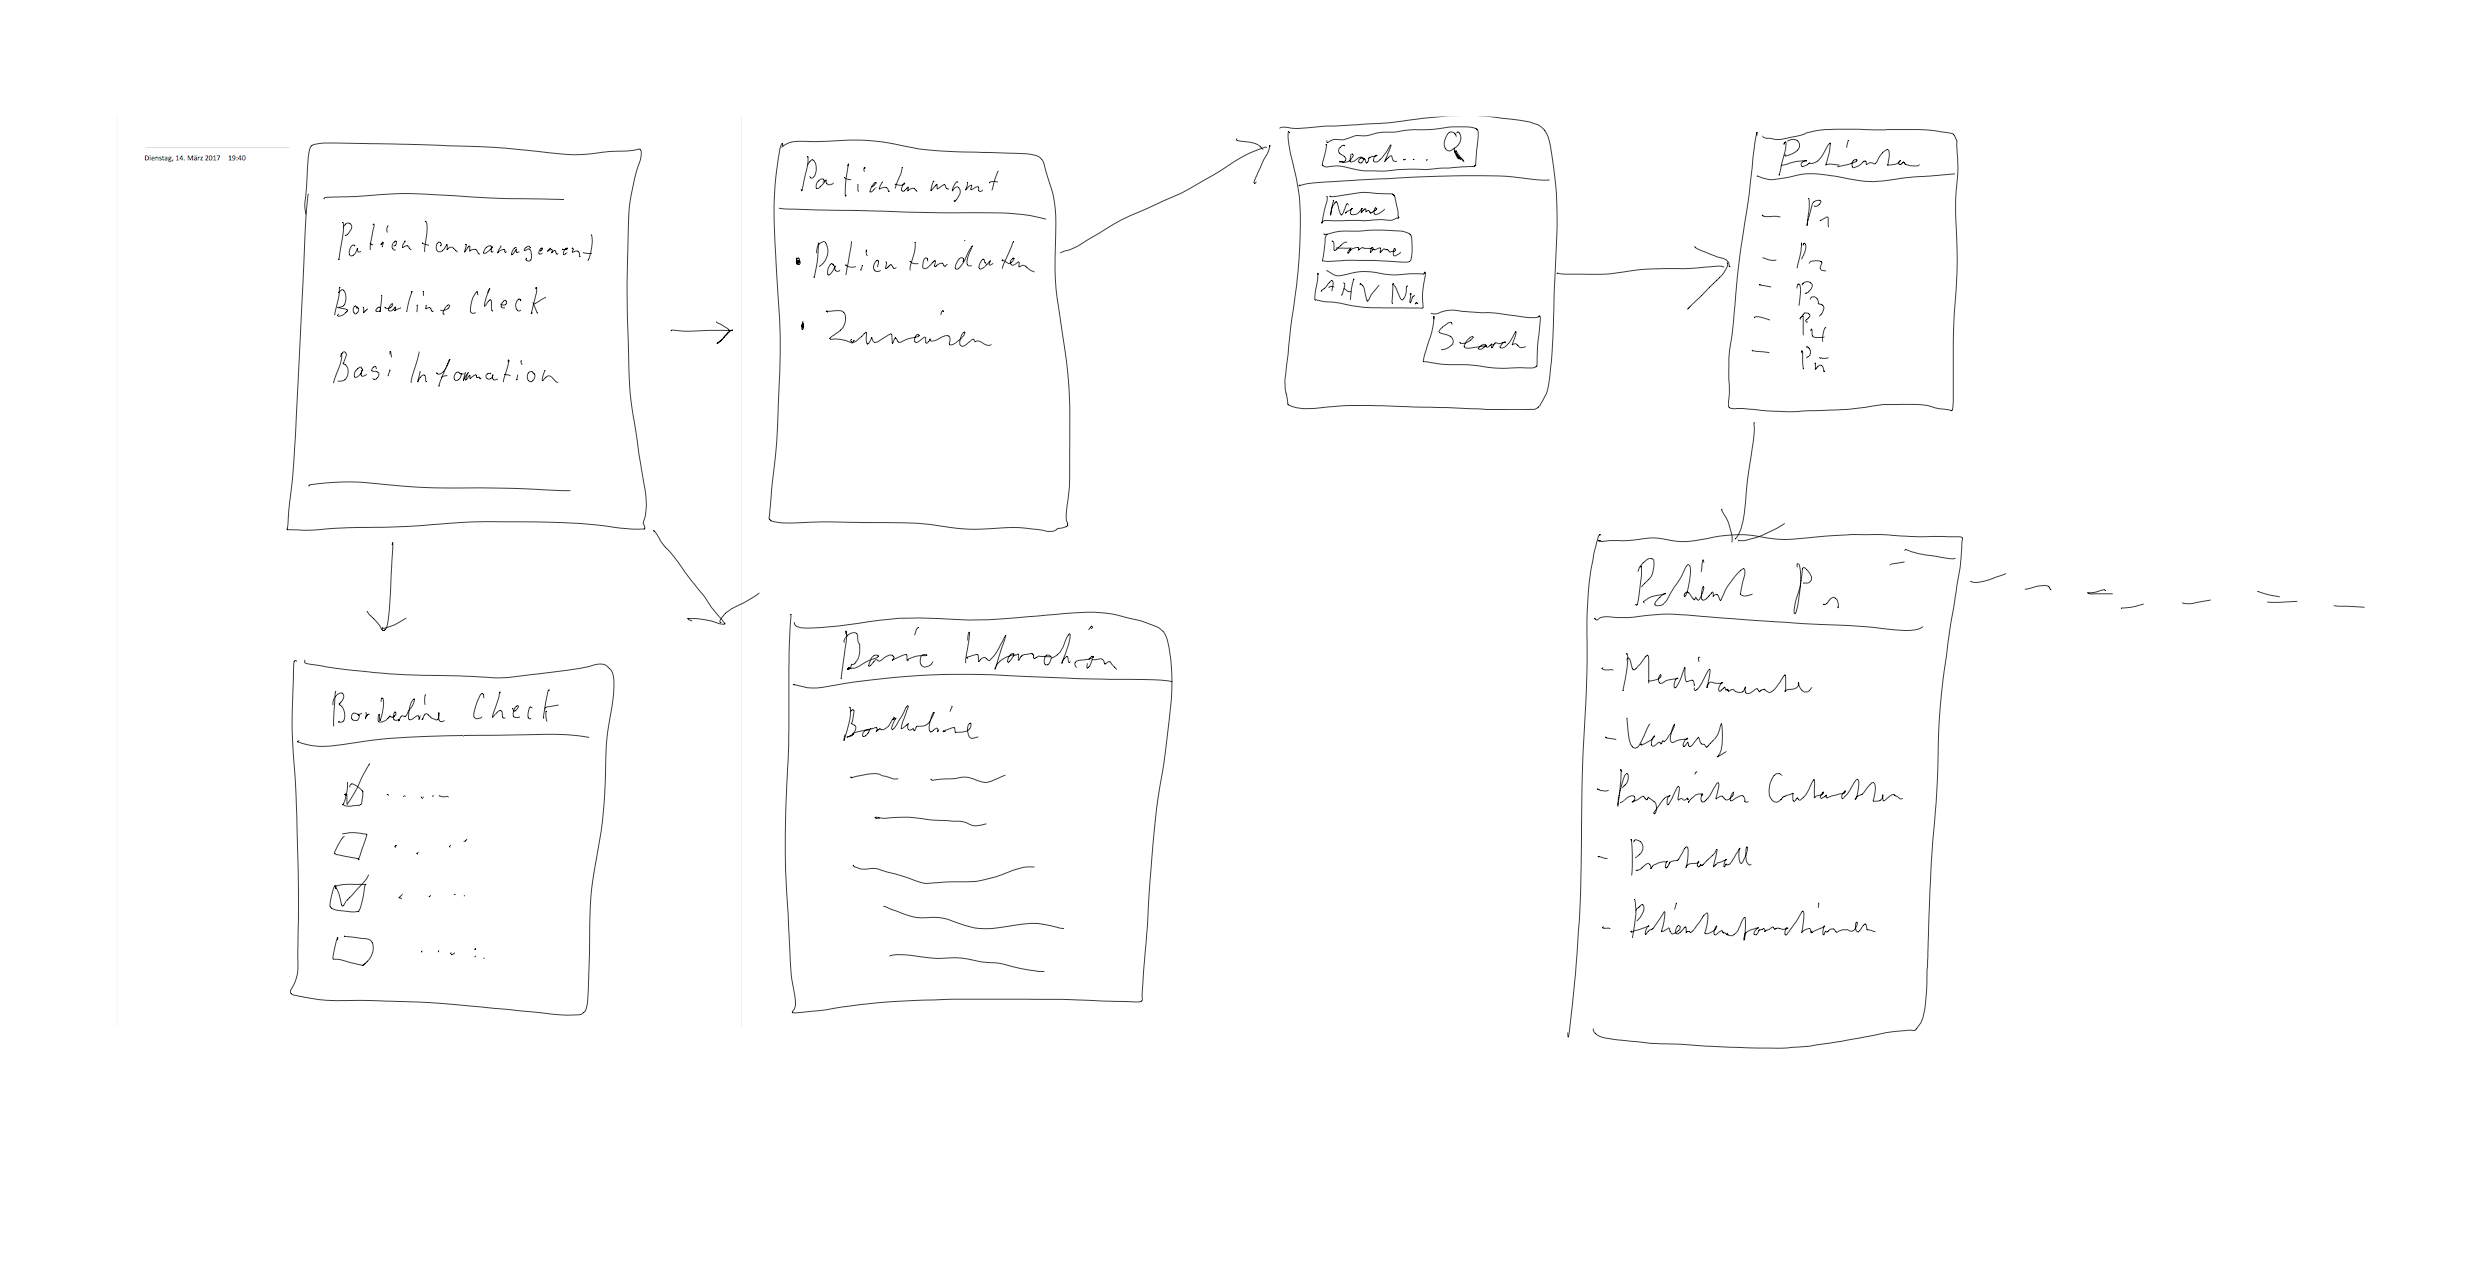 Dienstag, 14. März 2017 19:40
Patientenmanagement
Borderline Check
Basi Information
Patienten mgmt
• Patientendaten
• Zuweisen
Search...
Name
Vorname
AHV Nr.
Search
Patienten
- P1
- P2
- P3
- P4
- Pn
Borderline Check
Basic Information
Borderline
Patient Pn
- Medikamente
- Verlauf
- Psychisches Gutachten
- Protokoll